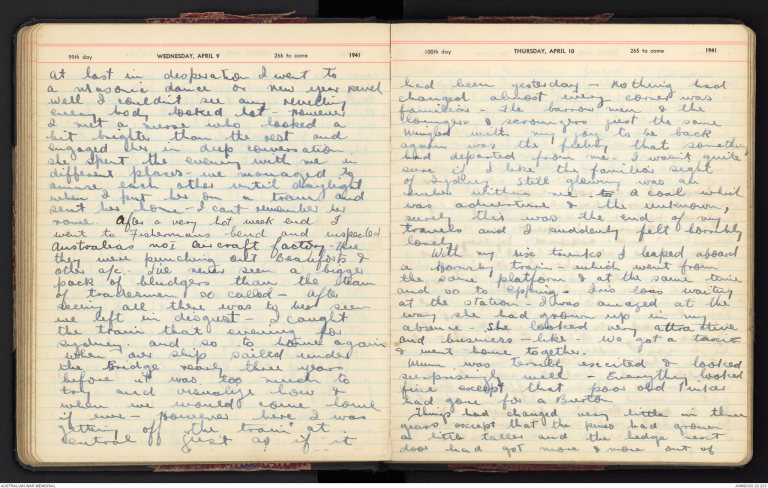 99th day WEDNESDAY, APRIL 9 266 to come 1941
at last in desperation I went to
a masonic dance or new year revel
well I couldn't see any revelling
every body looked hot - however
I met a nurse who looked a
bit brighter than the rest and
engaged her in deep conversation.
she spent the evening with me in
different places - we managed to
amuse each other until daylight
when I put her on a train and
sent her home - I can't remember her
name. After a very hot week end I
went to Fishermans bend and inspected
Australias no 1 aircraft factory - the
they were punching out Beauforts &
other a/c. I've never seen a bigger
pack of bludgers than the team
of tradesmen so called - After
seeing all there was to be seen
we left in disgust - I caught
the train that evening for
Sydney. and so to home again
When our ship sailed under
the Bridge nearly three years
before it was too much to
try and visualize how &
when we would come home
if ever. - However here I was
getting off the train at
Central just as if it
100th day THURSDAY, APRIL 10 265 to come 1941
had been yesterday - Nothing had
changed almost every corner was
familiar - The barrow men & the
loungers & scroungers just the same
Mingled with my joy to be back
again was the feeling that something
had departed from me - I wasn't quite
sure if I like the familiar sight
of Sydney. Still glowing was an
ember within me - a coal which
was adventure & the unknown,
surely this was the end of my
travels and I suddenly felt horribly
lonely
With my six trunks I leaped aboard
a Hornsby train - which went from
the same platform & at the same time
and so to Epping - Iris was waiting
at the station - I was amazed at the
way she had grown up in my
absence - She looked very attractive
and business - like - We got a taxi
& went home together.
Mum was terribly excited & looked
surprisingly well - Everything looked
fine except that poor old Tinker
had gone for a Burton
Things had changed very little in three
years except that the pines had grown
a little taller and the hedge next
door had got more & more out of
AUSTRALIAN WAR MEMORIAL
AWM2020.22.223